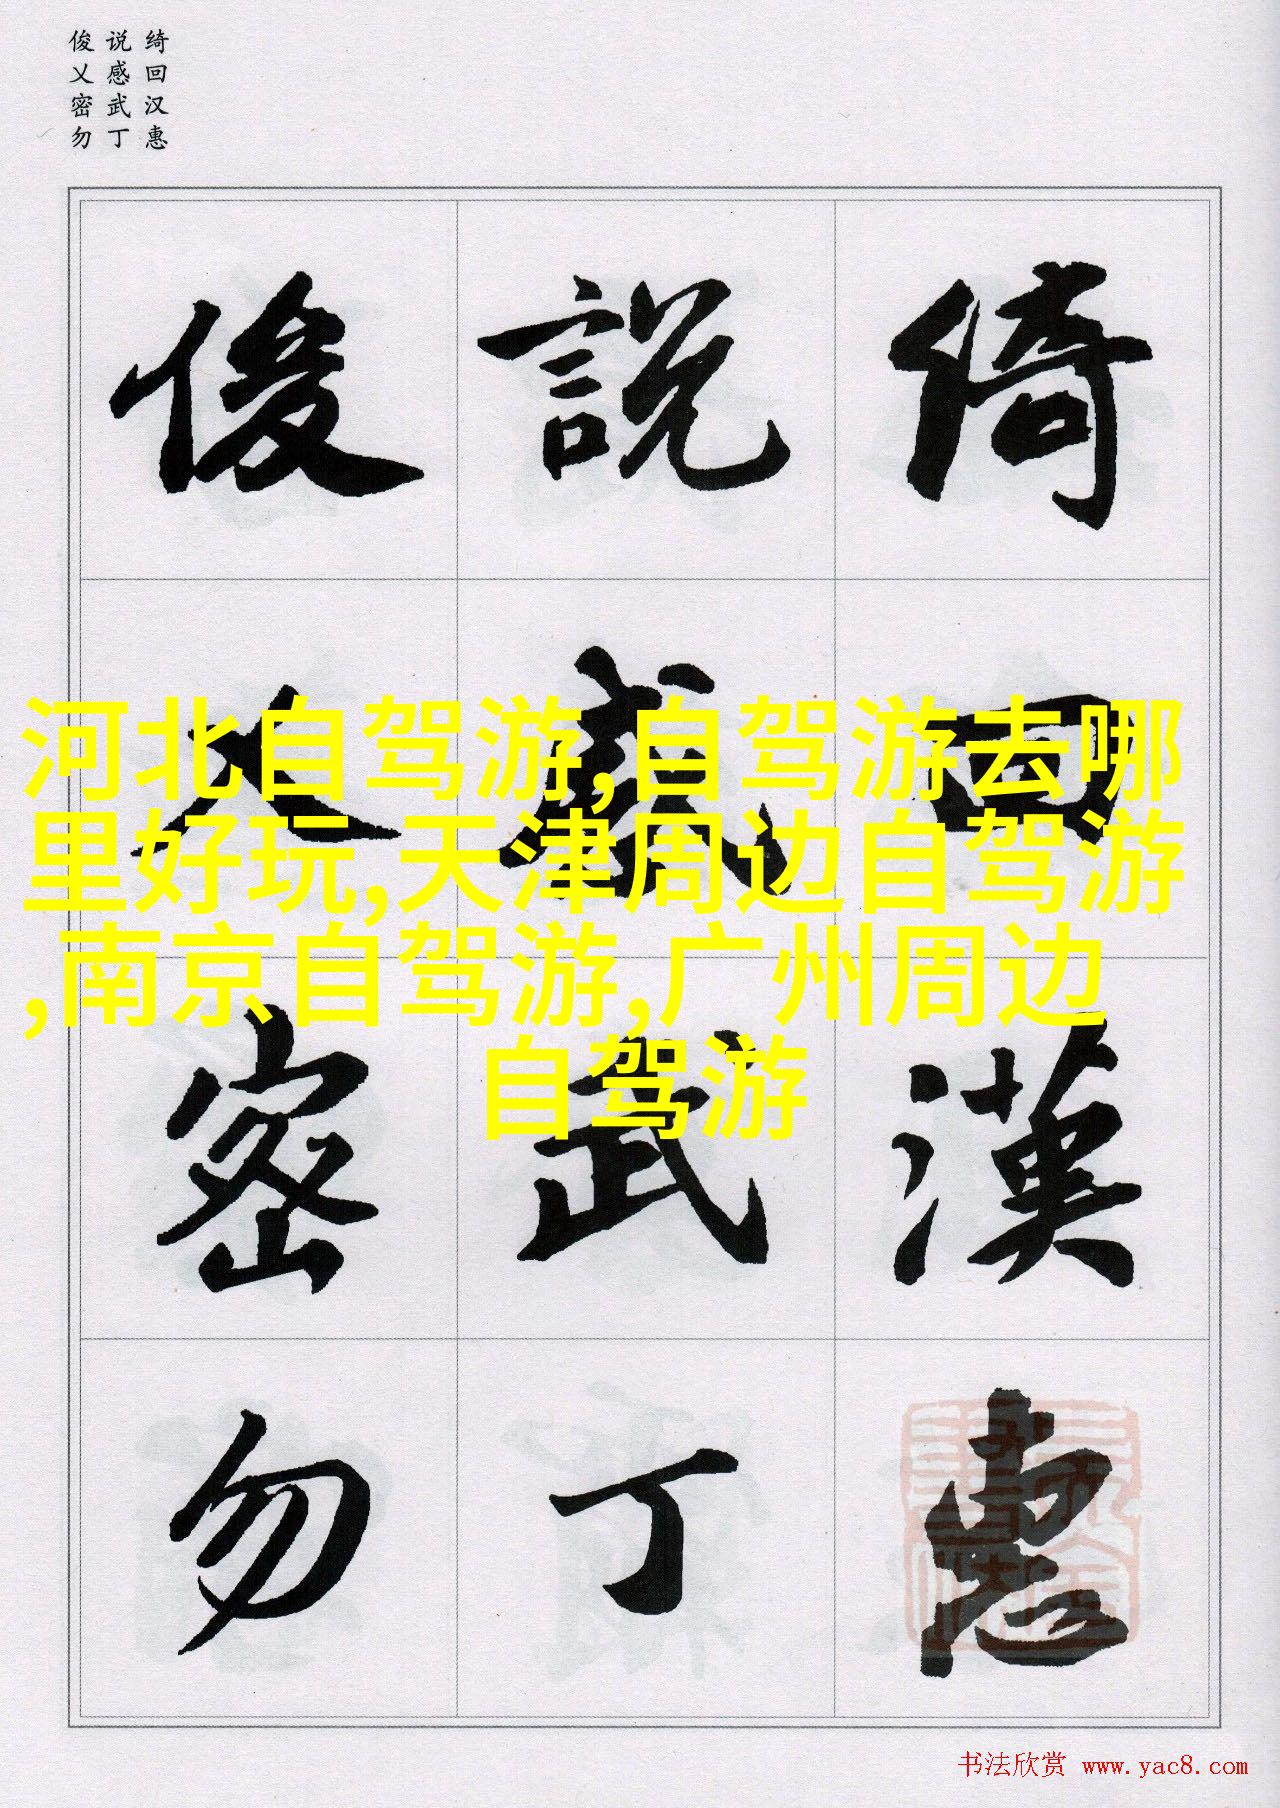 绮回汉惠
说感武丁
俊乂密勿
綺回漢惠
說感武丁
俊乂密勿
河北自驾游,自驾游去哪
里好玩,天津周边自驾游
,南京自驾游,广州周边
自驾游
书法欣赏 www.yac8.com